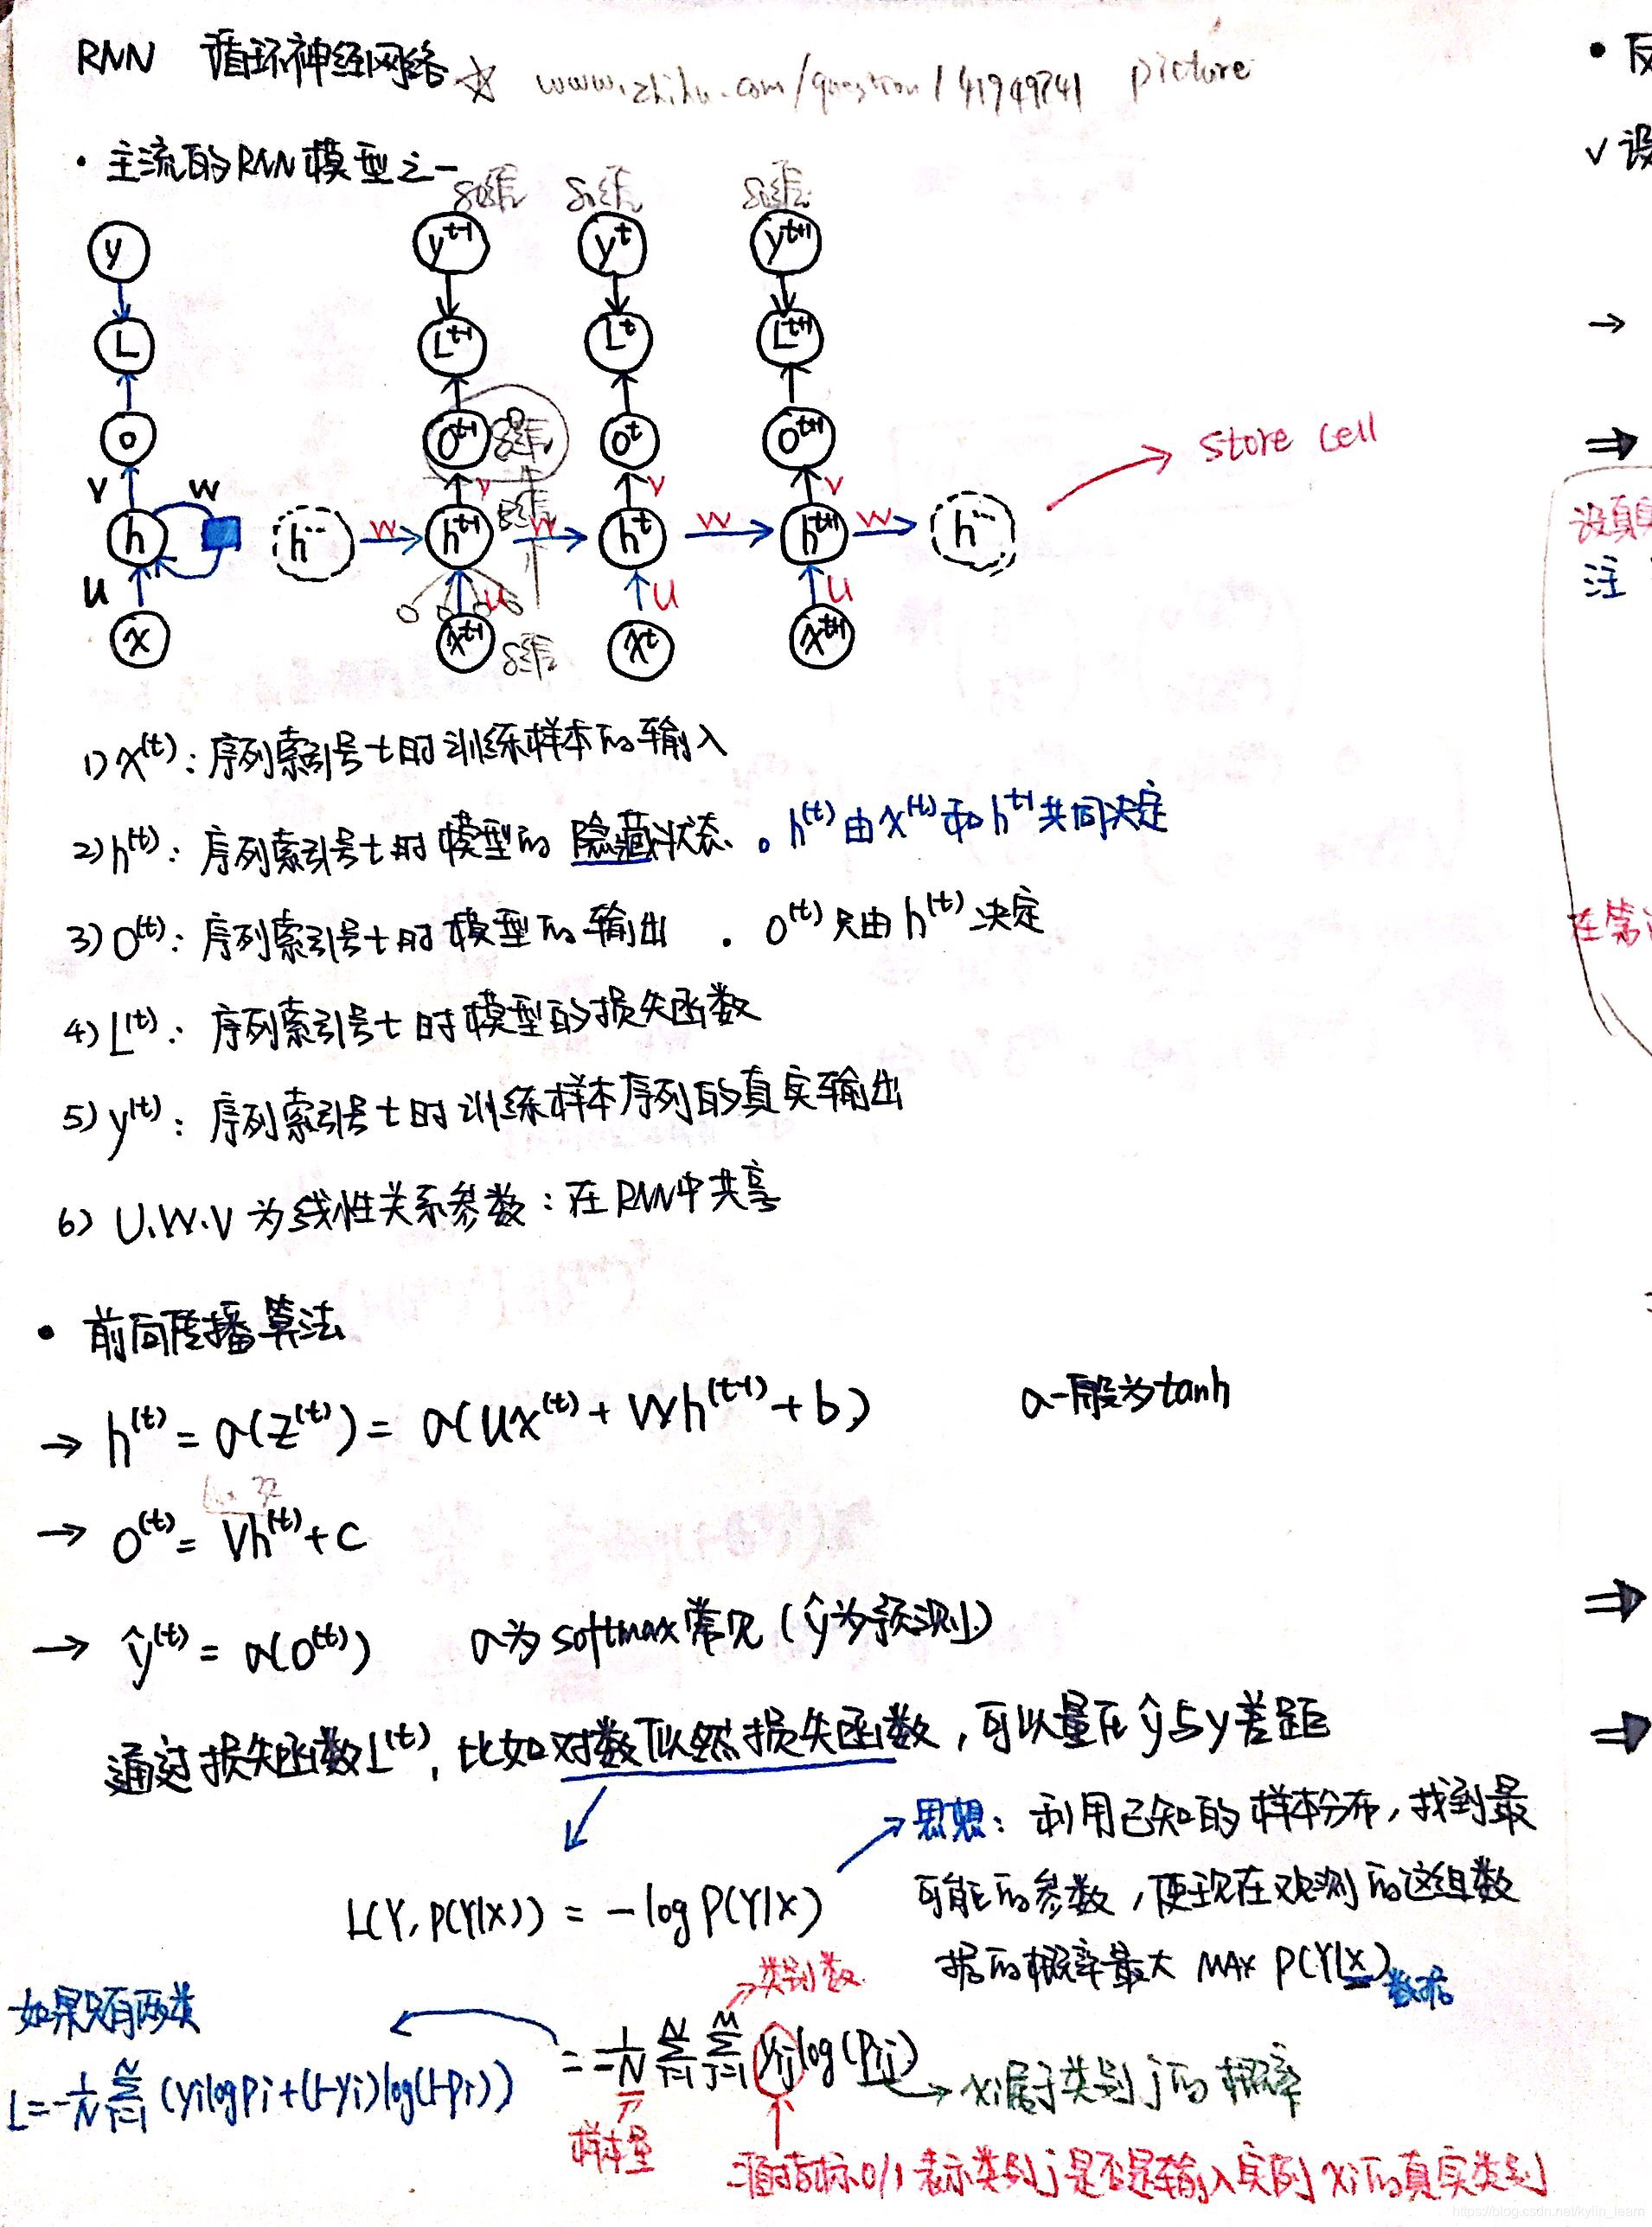 RNN 循环神经网络 ☆ www.zhihu.com/question/41949741 picture
• 反
• 主流的RNN模型之一
✓ 设
y y^{t-1} y^{t} y^{t+1}
L L^{t-1} L^{t} L^{t+1}
o o^{t-1} o^{t} o^{t+1} → store cell
V V V V
W
h h^{...} W h^{t-1} W h^{t} W h^{t+1} W h^{...}
U U U U
x x^{t-1} x^{t} x^{t+1}
设真
注
1) x^{(t)}: 序列索引号t时训练样本的输入
2) h^{(t)}: 序列索引号t时模型的隐藏状态。h^{(t)}由x^{(t)}和h^{t-1}共同决定
3) O^{(t)}: 序列索引号t时模型的输出 . O^{(t)}只由h^{(t)}决定
4) L^{(t)}: 序列索引号t时模型的损失函数
5) y^{(t)}: 序列索引号t时训练样本序列的真实输出
6) U.W.V 为线性关系参数:在RNN中共享
• 前向传播算法
→ h^{(t)} = σ(z^{(t)}) = σ(Ux^{(t)} + Wh^{(t-1)} + b) σ一般为tanh
→ O^{(t)} = Vh^{(t)} + C
→ ŷ^{(t)} = σ(O^{(t)}) σ为softmax常见(ŷ为预测)
通过损失函数L^{(t)}, 比如对数似然损失函数,可以量化ŷ与y差距
→ 思想: 利用已知的样本分布,找到最
可能的参数,使现在观测的这组数
据的概率最大 MAX P(Y|X) 数据
L(Y, P(Y|X)) = -log P(Y|X)
→ 类别数
如果只有两类
= -\frac{1}{N} \sum_{i=1}^{N} \sum_{j=1}^{M} y_{ij} log(P_{ij}) → xi属于类别j的概率
L = -\frac{1}{N} \sum_{i=1}^{N} (yi log pi + (1-yi) log(1-pi))
样本量
二值指标0/1 表示类别j是否是输入实例xi的真实类别
https://blog.csdn.net/kylin_learn